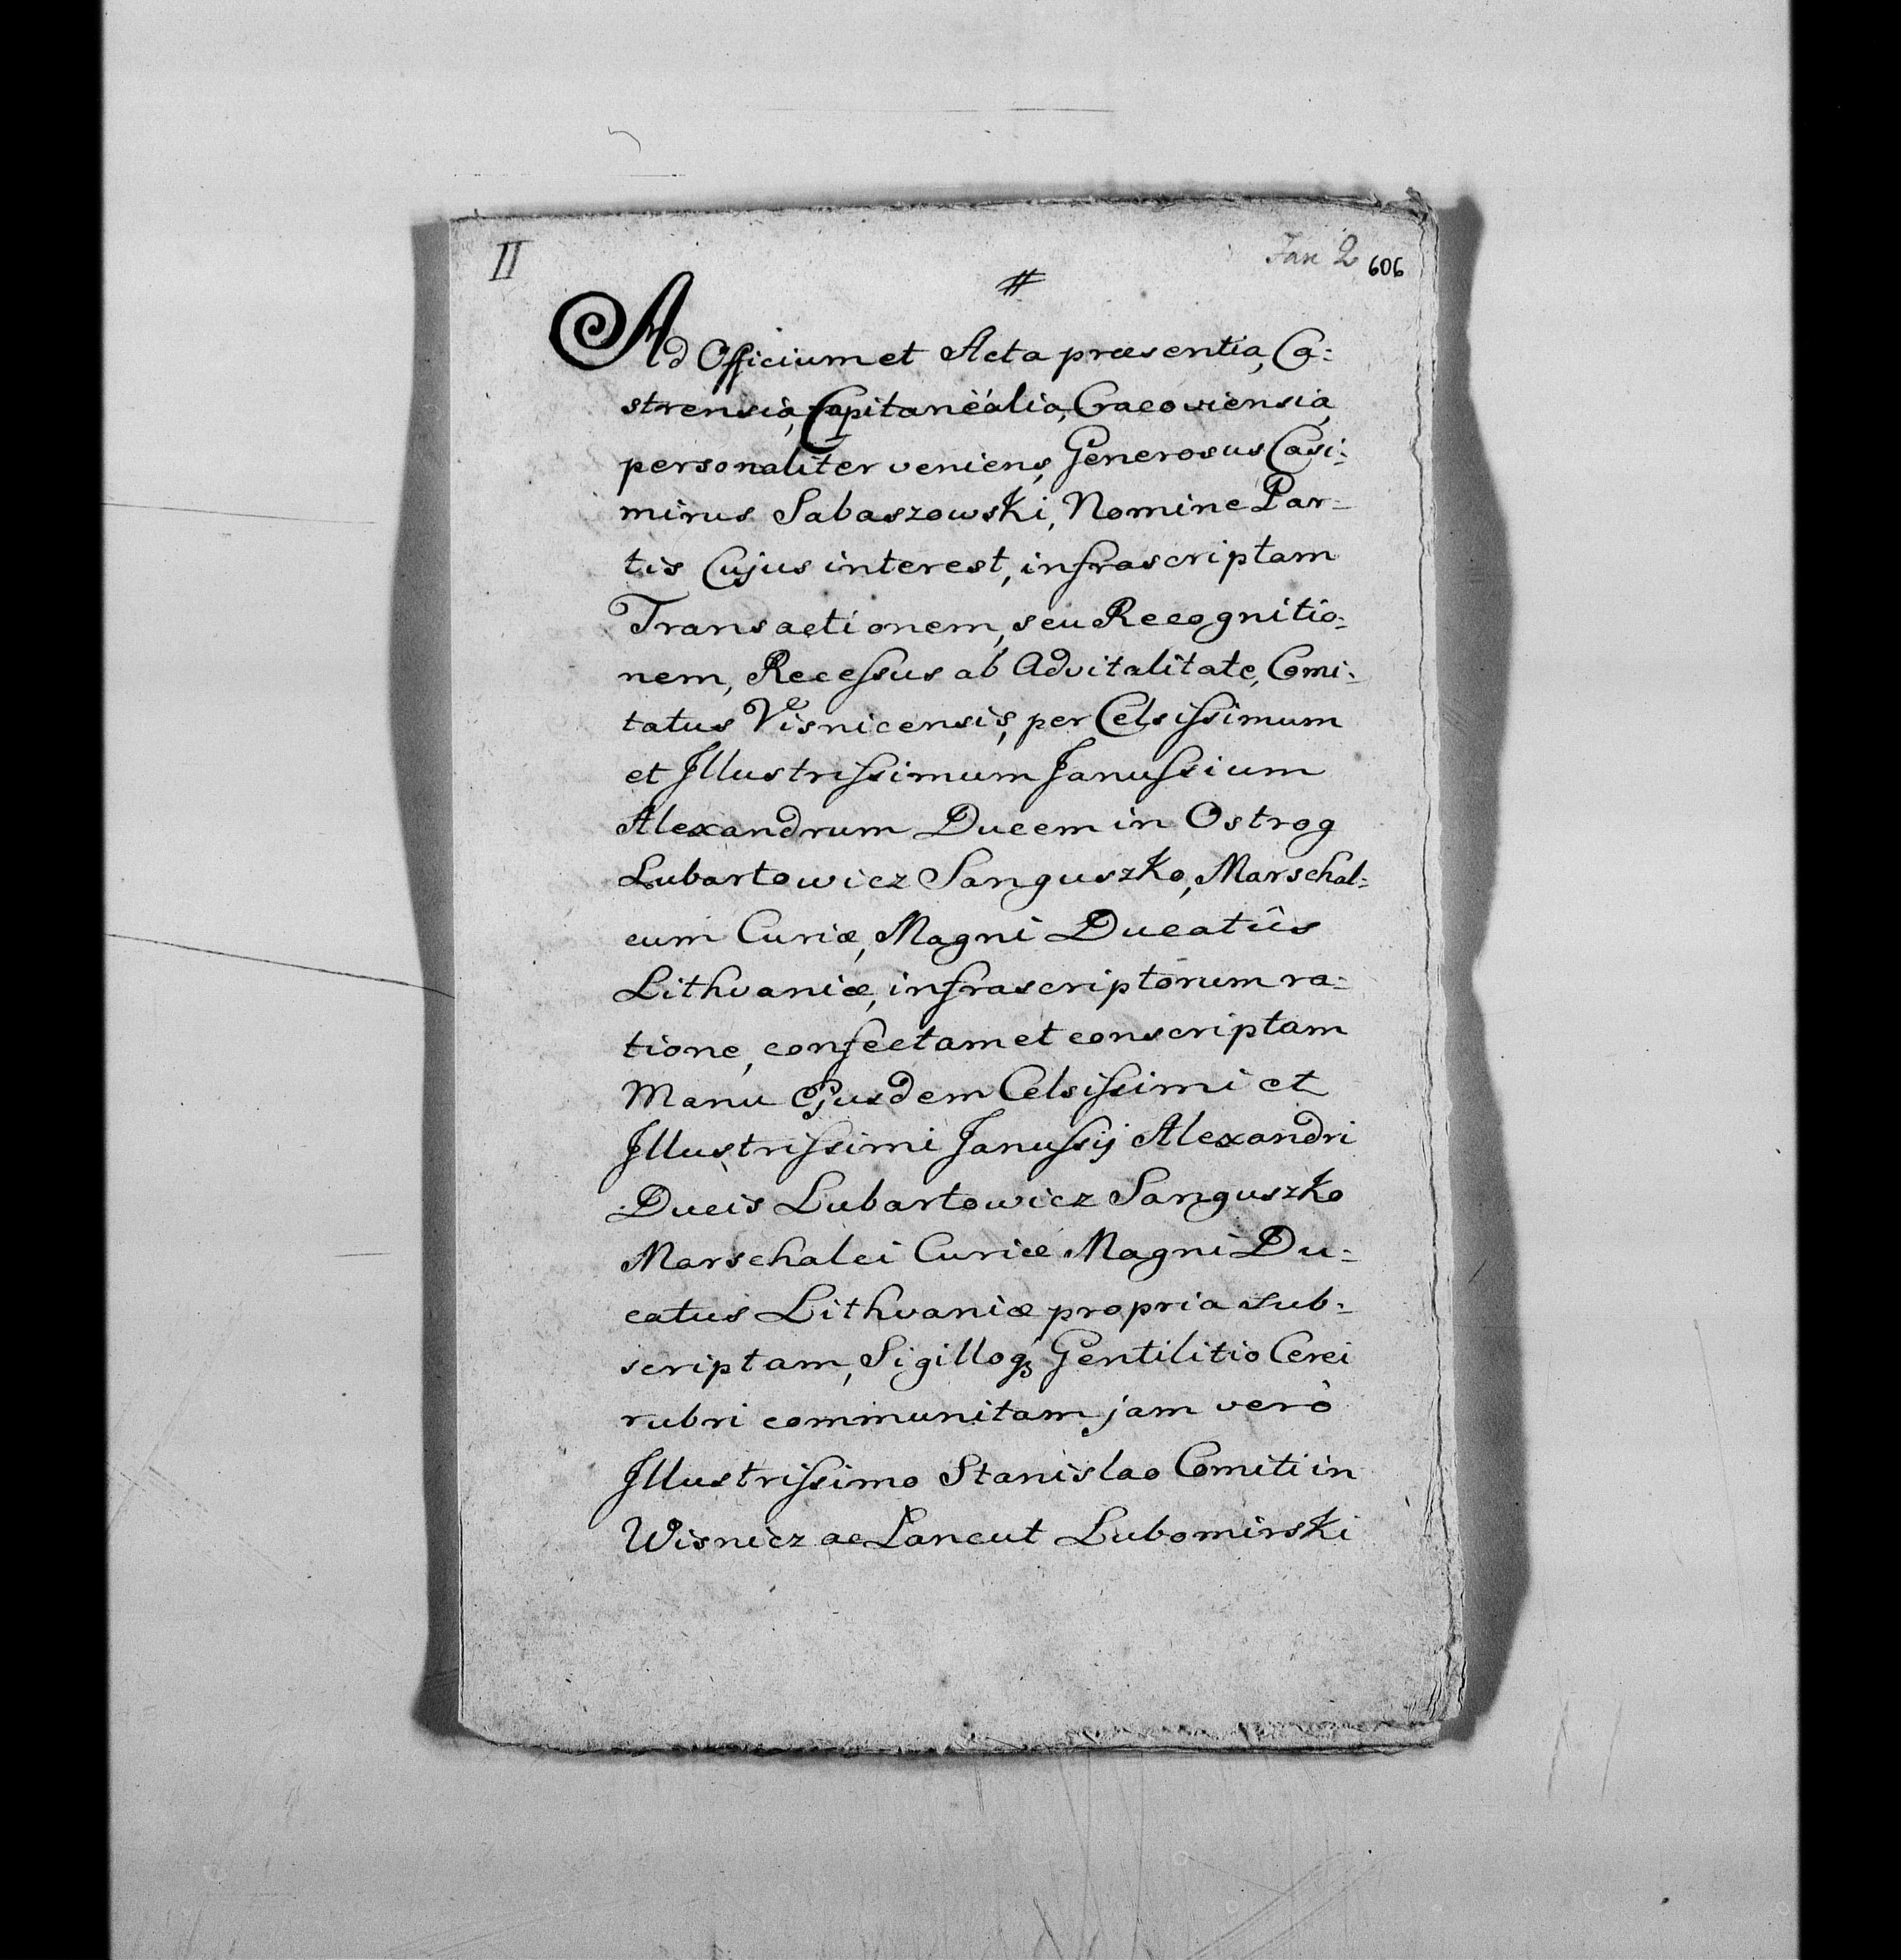 II
Fasc 2 606
#
Ad Officium et Acta præsentia, Ca:
strensia, Capitanëalia, Cracoviensia,
personaliter veniens, Generosus Casi:
mirus Sabaszowski, Nomine Par=
tis Cujus interest, infrascriptam
Transactionem, seu Recognitio:
nem, Recessus ab Advitalitate, Comi:
tatus Visnicensis, per Celsissimum
et Illustrissimum Janussium
Alexandrum Ducem in Ostrog
Lubartowicz Sanguszko, Marschal:
cum Curiæ, Magni Ducatûs
Lithvaniæ, infrascriptorum ra:
tione, confectam et conscriptam
Manu Ejusdem Celsissimi et
Illustrissimi Janussij Alexandri
Ducis Lubartowicz Sanguszko
Marschalci Curiæ Magni Du:
catus Lithvaniæ propria sub:
scriptam, Sigilloq3 Gentilitio Cerei
rubri communitam, jam verò
Illustrissimo Stanislao Comiti in
Wisnicz ac Lancut Lubomirski